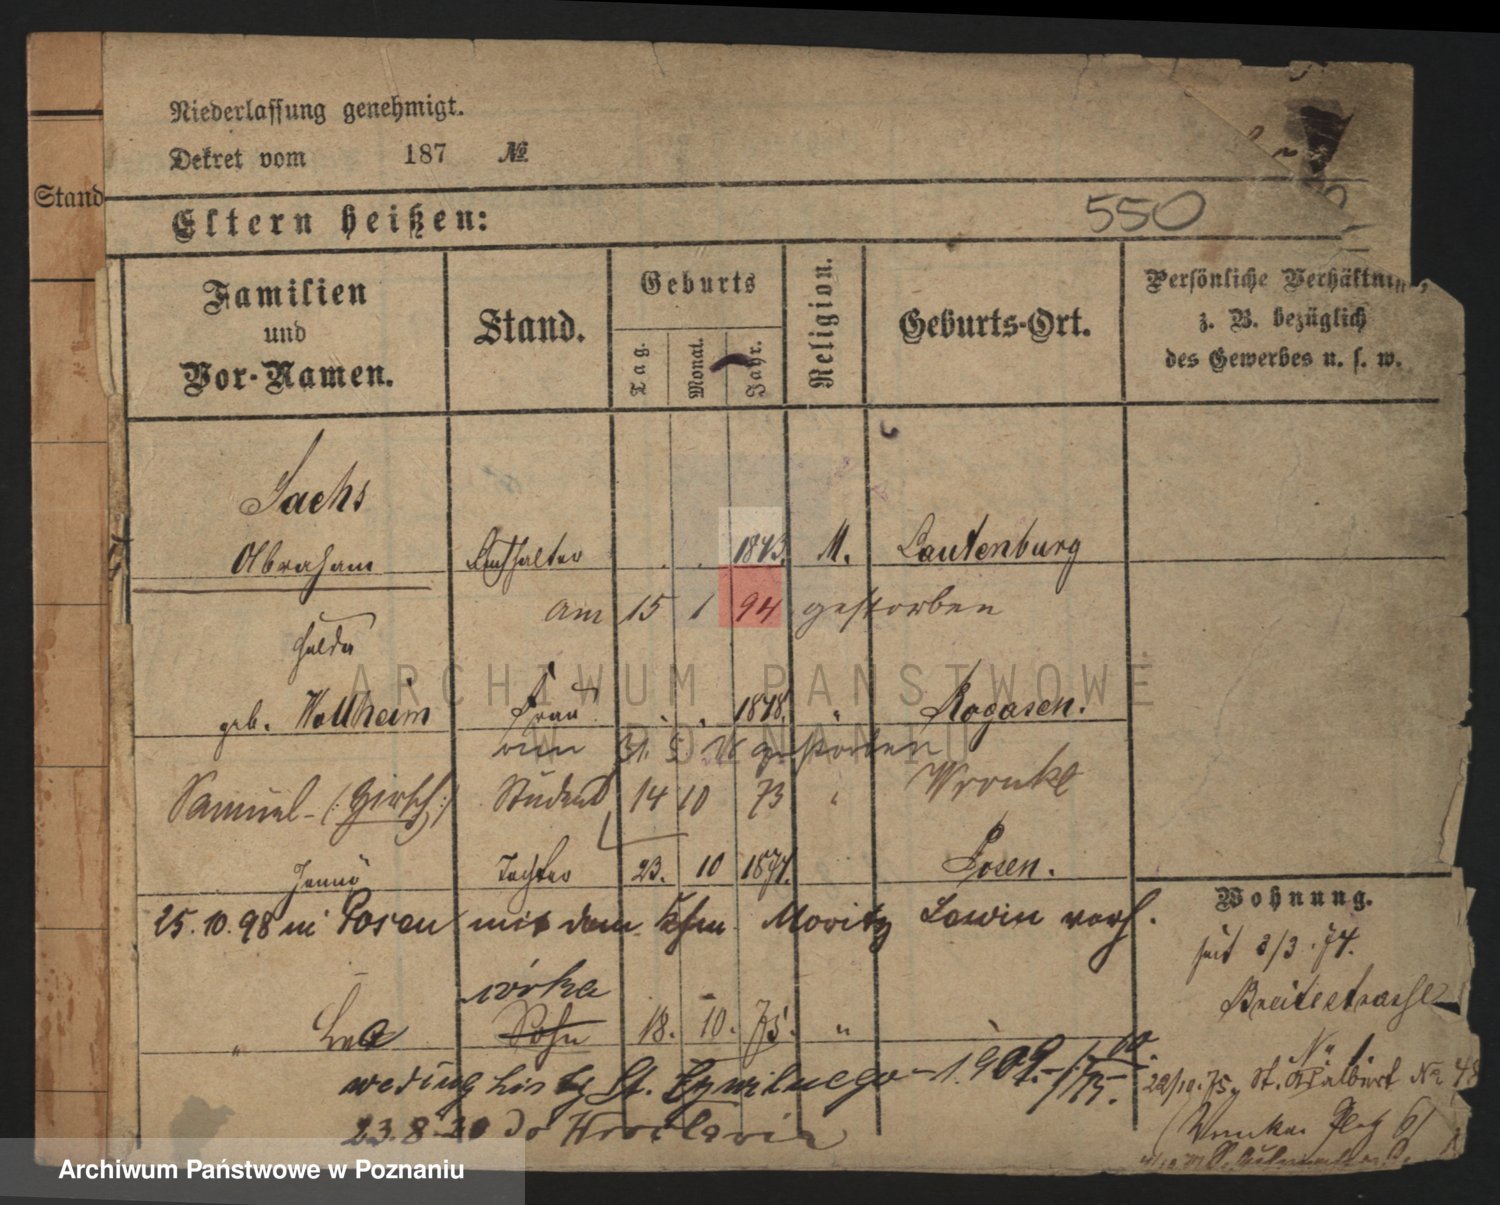 Niederlassung genehmigt.
Dekret vom 187 №
Stand
Eltern heißen:
550
Familien
und
Vor-Namen.
Stand.
Geburts
Tag.
Monat.
Jahr.
Religion.
Geburts-Ort.
Persönliche Verhältn
z. B. bezüglich
des Gewerbes u. s. w.
Sachs
Abraham 1843. M. Lautenburg
am 15 1 94 gestorben
Hulda
geb. Wollheim Frau 1848. " Rogasen.
gestorben
Samuel (Hirsch) Student 14 10 73 " Wronke
Jenny Tochter 23. 10 1874. Posen.
25.10.98 in Posen mit dem Kfm. Moritz Lewin verh.
córka
" Lea Sohn 18. 10. 75. "
według listy St. Cywilnego 1909.
23.8.20 do Wrocławia
Wohnung.
seit 3/3. 74.
Breitestrasse
№ 1.
St. Adalbert №
ARCHIWUM PAŃSTWOWE
W POZNANIU
Archiwum Państwowe w Poznaniu